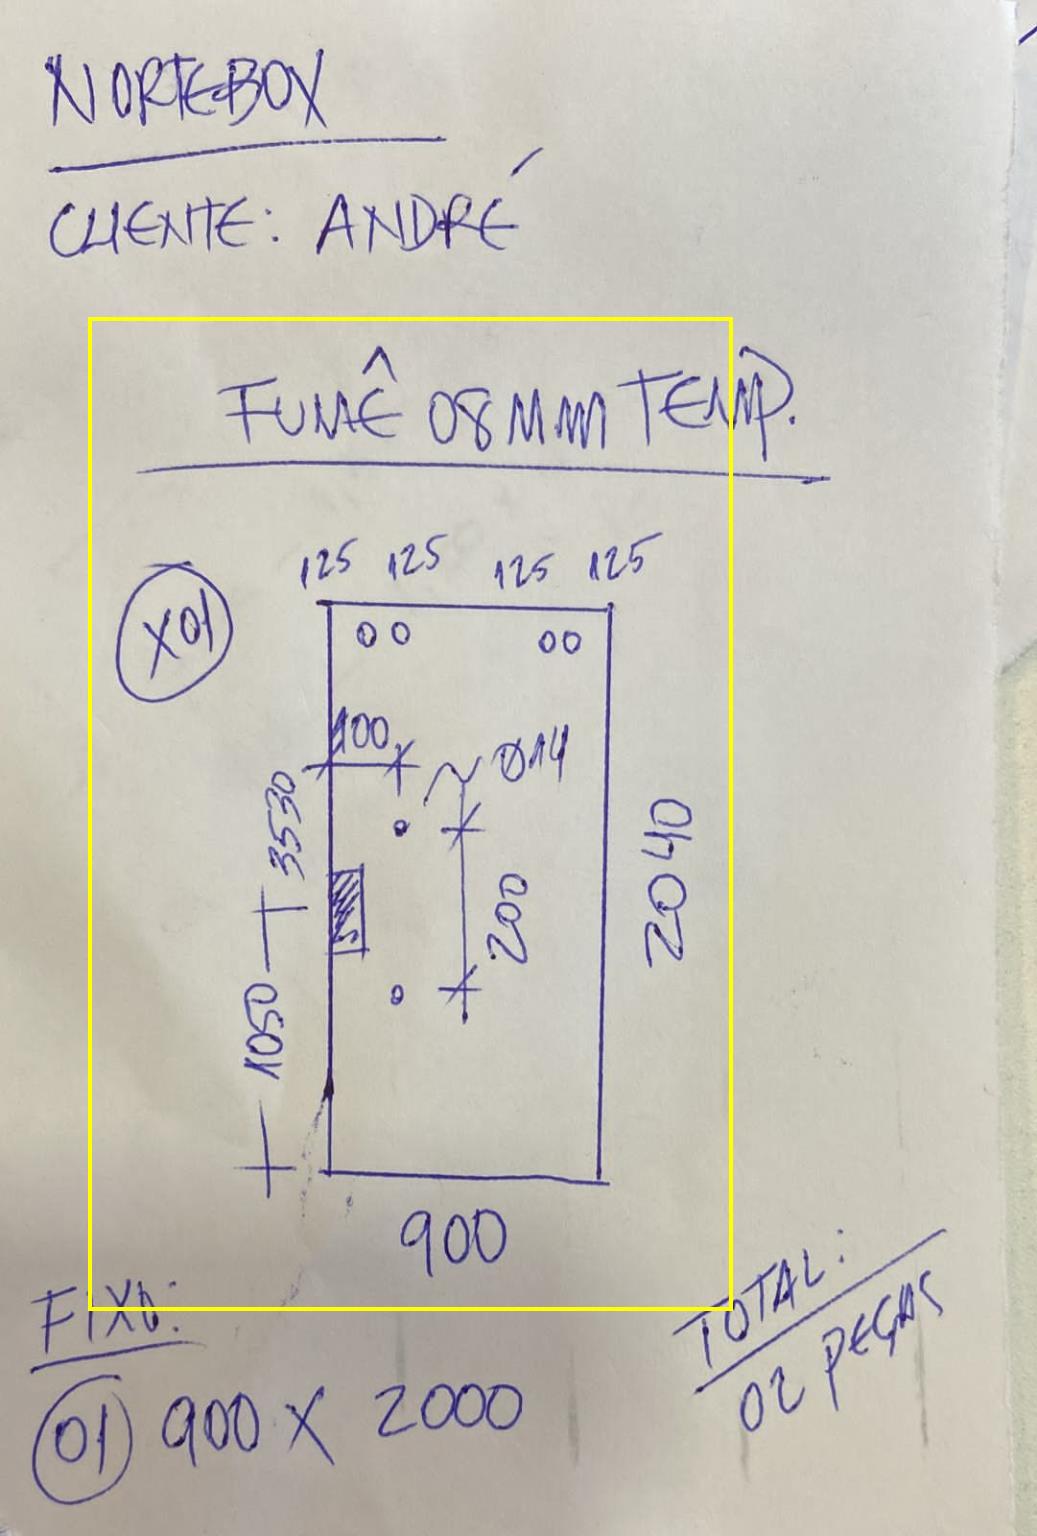 NORTEBOX
CLIENTE: ANDRÉ
FUMÊ 08MM TEMP.
125 125 125 125
X01
100
Ø14
3530
200
2040
1050
900
FIXO:
01 900 X 2000
TOTAL:
02 PEÇAS